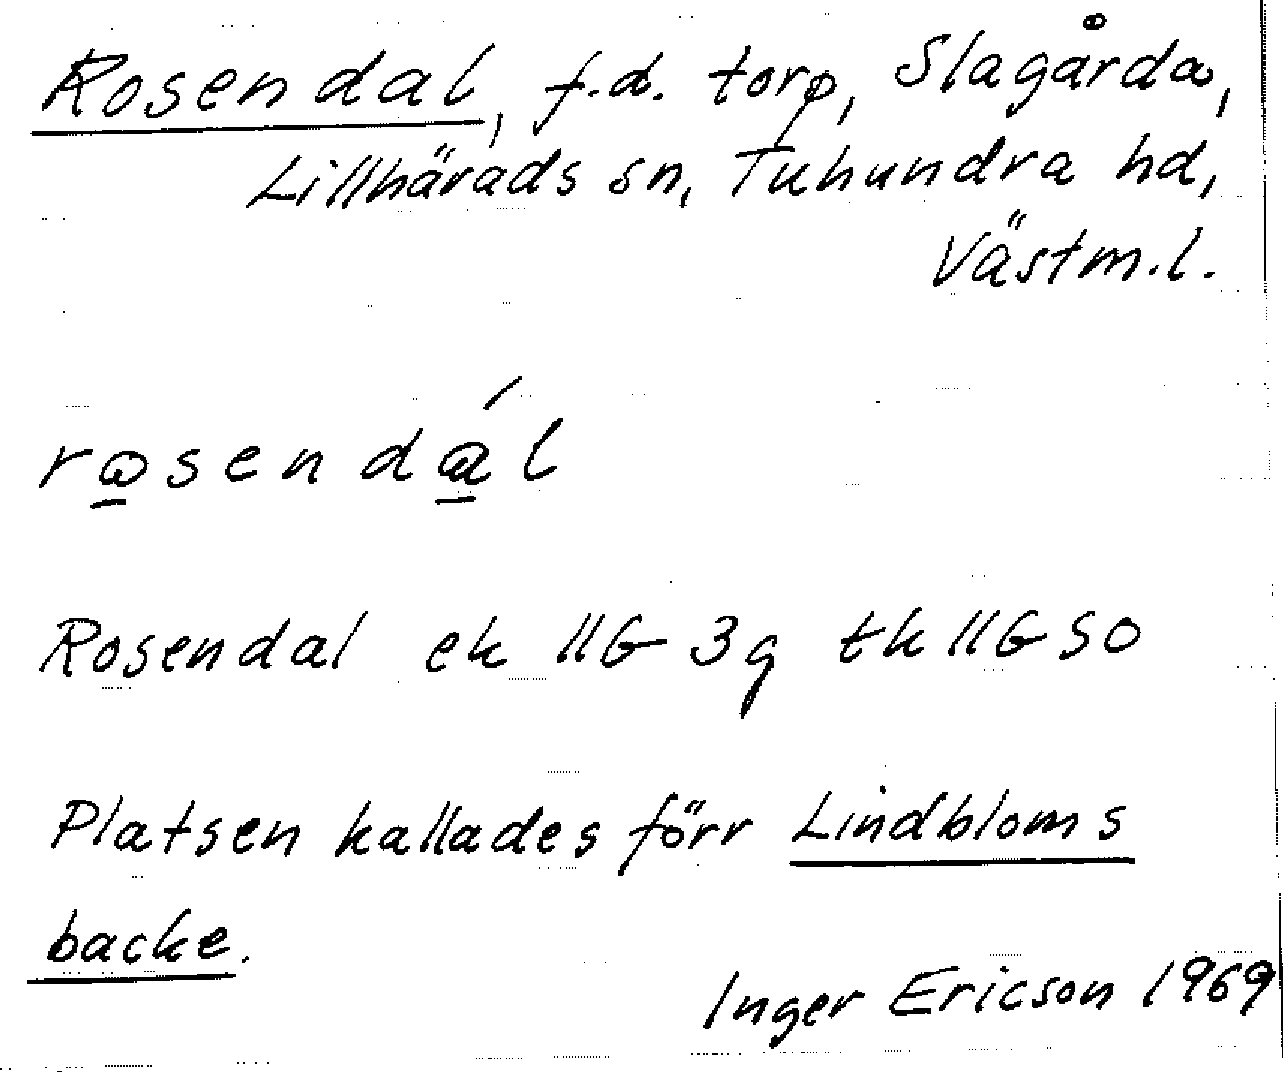 Rosendal, f.d. torp, Slagårda,
Lillhärads sn, Tuhundra hd,
Västm.l.
rosendál
Rosendal ek 11G 3g tk 11G SO
Platsen kallades förr Lindbloms
backe.
Inger Ericson 1969